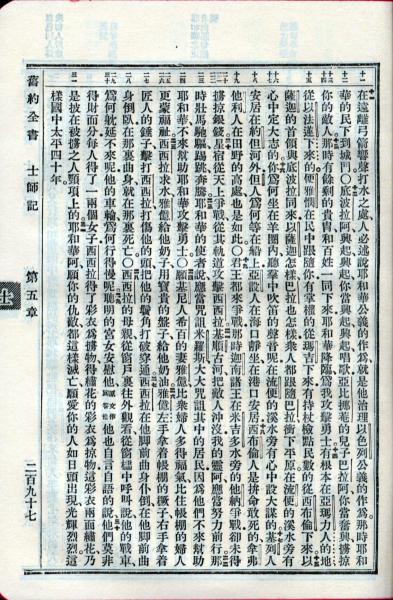 在遠離弓箭響聲打水之處人必述說耶和華公義的作為就是他治理以色列公義的作為那時耶和
華的民下到城門〇底波拉阿興起興起你當興起興起唱歌亞比挪菴的兒子巴拉阿你當奮興擄掠
你的敵人那時有餘剩的貴冑和百姓一同下來耶和華降臨為我攻擊勇士有根本在亞瑪力人的地
從以法蓮下來的便雅憫在民中跟隨你有掌權的從瑪吉下來有持杖檢點民數的從西布倫下來以
薩迦的首領與底波拉同來以薩迦怎樣巴拉也怎樣衆人都跟隨巴拉衝下平原在流便的溪水旁有
心中定大志的你爲何坐在羊圈內聽羣中吹笛的聲音呢在流便的溪水旁有心中設大謀的基列人
安居在約但河外但人爲何等在船上亞設人在海口靜坐在港口安居西布倫人是拚命敢死的拿弗
他利人在田野的高處也是如此〇君王都來爭戰那時迦南諸王在米吉多水旁的他納爭戰卻未得
擄掠銀錢星宿從天上爭戰從其軌道攻擊西西拉基順古河把敵人沖沒我的靈阿應當努力前行那
時壯馬馳驅踢跳奔騰耶和華的使者說應當咒詛米羅斯大大咒詛其中的居民因爲他們不來幫助
耶和華不來幫助耶和華攻擊勇士〇願基尼人希百的妻雅億比衆婦人多得福氣比住帳棚的婦人
更蒙福祉西西拉求水雅億給他奶子用寶貴的盤子給他奶油雅億左手拿着帳棚的橛子右手拿着
匠人的錘子擊打西西拉打傷他的頭把他的鬢角打破穿通西西拉在他脚前曲身仆倒在他脚前曲
身倒臥在那裏曲身就在那裏死亡〇西西拉的母親從窗戶裏往外觀看從窗櫺中呼叫說他的戰車
爲何躭延不來呢他的車輪爲何行得慢呢聰明的宮女安慰他原文作回答他他也自言自語的說他們莫非
得財而分每人得了一兩個女子西西拉得了彩衣爲擄物得繡花的彩衣爲掠物這彩衣兩面繡花乃
是披在被擄之人頸項上的耶和華阿願你的仇敵都這樣滅亡願愛你的人如日頭出現光輝烈烈這
樣國中太平四十年
舊約全書 士師記 第五章 二百九十七